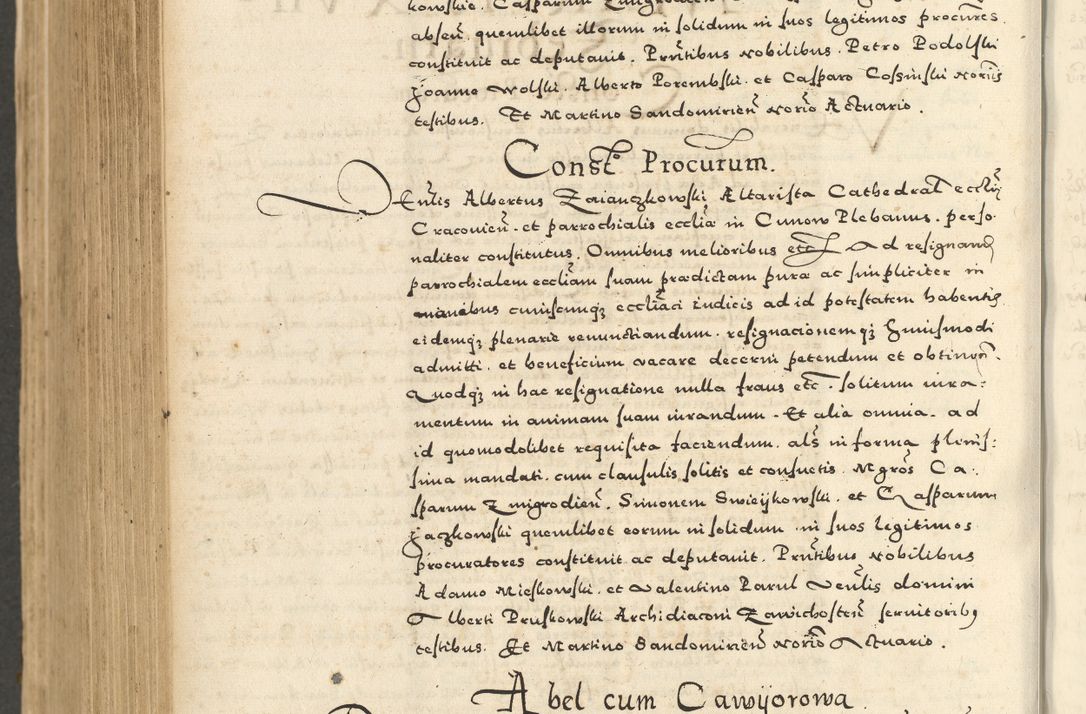 absen̄. quemlibet illorum in solidum in suos legitimos procūres
constituit ac deputauit. Prn̄tibus nobilibus. Petro Podolski
Joanne Wolski. Alberto Porembski. et Casparo Cossinski noriis
testibus. Et Martino Sandomirien̄ norio Actuario.
Const̄ Procurum.
Venlis Albertus Zaianczkowski Altarista Cathedral ecclīę
Cracouien̄. et parrochialis ecclīæ in Cunow Plebanus. perso
naliter constitutus. Omnibus melioribus etc̄ Ad resignand
parrochialem eccliam suam prædictam puræ ac simpliciter in
manibus cuiuscunqʒ eccliāci iudicis ad id potestatem habentis
eidemqʒ plenariè renunctiandum. resignacionemqʒ huiusmodi
admitti. et beneficium vacare decerni petendum et obtinen̄.
Quodqʒ in hac resignatione nulla fraus etc̄. solitum iura:
mentum in animam suam iurandum. Et alia omnia. ad
id quomodolibet requisita faciendum. als̄ in forma plenis:
sima mandati. cum clausulis solitis et consuetis. Mgros̄ Ca.
sparum Zmigrodien̄. Simonem Swieijkowski. et Casparum
Jaczkowski quemlibet eorum in solidum in suos legitimos
procuratores constituit ac deputauit. Prn̄tibus nobilibus
Adamo Mieskowski. et Valentino Parul Venlis domini
Alberti Pruskowski Archidiaconi Zawichosten̄ seruitoribꝯ
testibus. Et Martino Sandomirien̄ norio Actuario.
Abel cum Cawijorowa